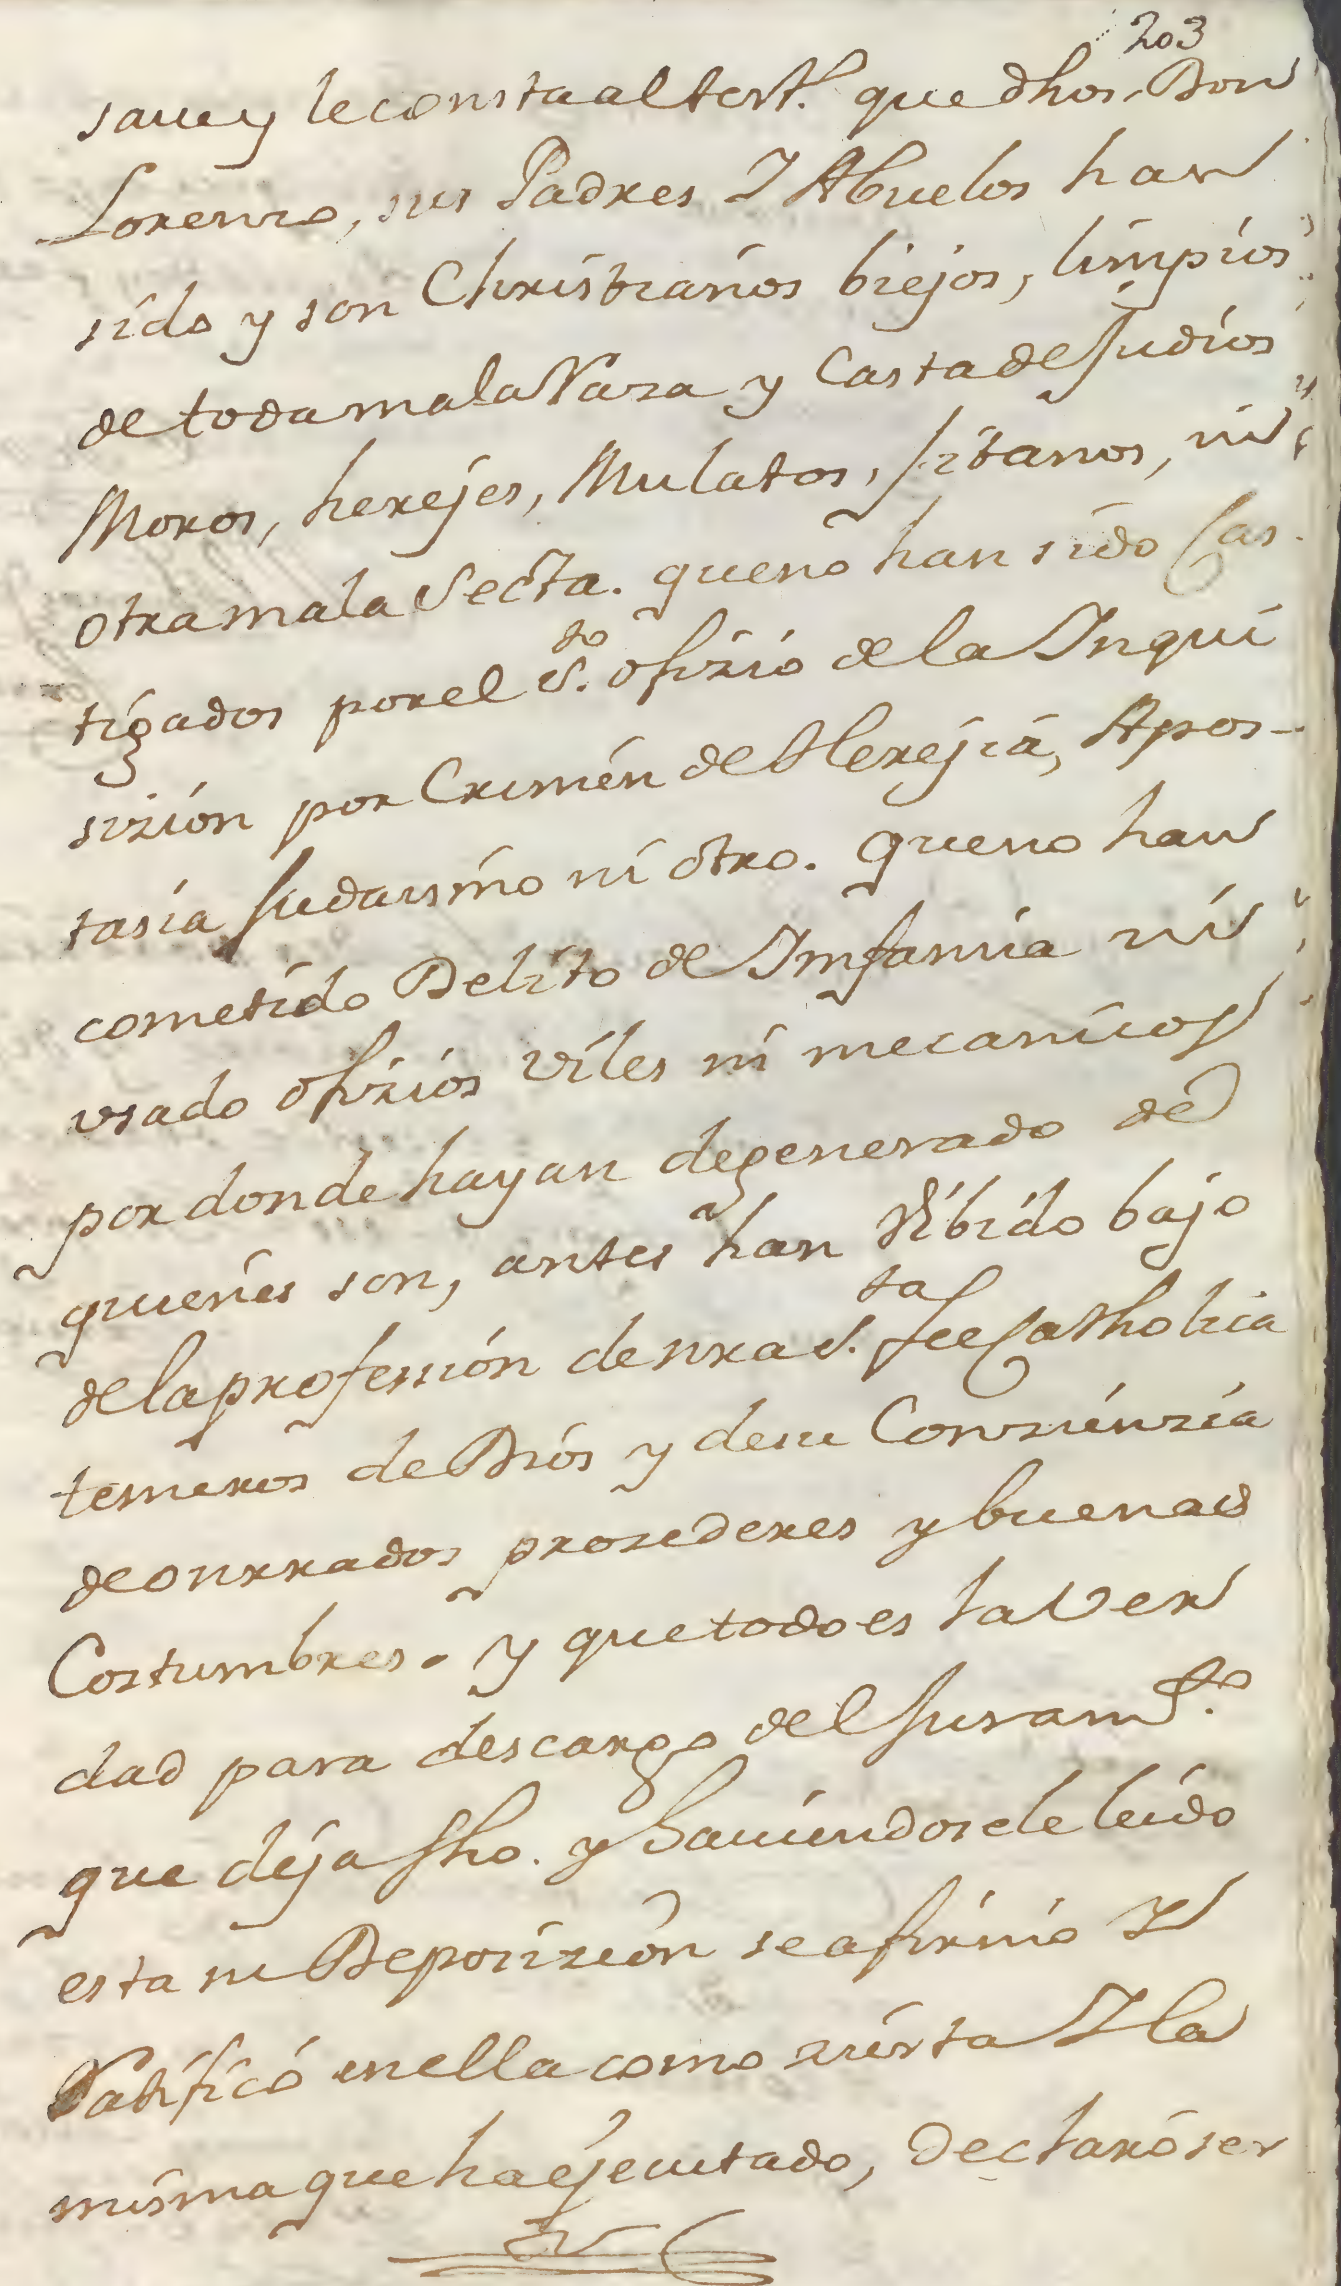 203
saue y le consta al test.º que dhos. Don
Lorenzo, sus Padres Y Abuelos han
sido y son Christianos biejos, limpios
de toda mala Raza y Casta de Judios
Moros, herejes, Mulatos, Jitanos, ni
otra mala Secta. que no han sido Cas-
tigados por el S.to ofizio de la Inqui
sizion por Crimen de Herejia, Apos-
tasia Judaismo ni otro. que no han
cometido Delito de Imfamia ni
vsado ofizios viles ni mecanicos
por donde hayan degenerado de
quienes son, antes han Vibido bajo
de la profession de nra S.ta fee Catholica
temeros de Dios y de su Conzienzia
de onrrados prozederes y buenas
Costumbres. y que todo es la Ver
dad para descargo del Juram.to
que deja fho. y Hauiendosele leido
esta su Deposizion se afirmó Y
Ratificó en ella como zierta Y la
misma que ha ejecutado, Declaró ser